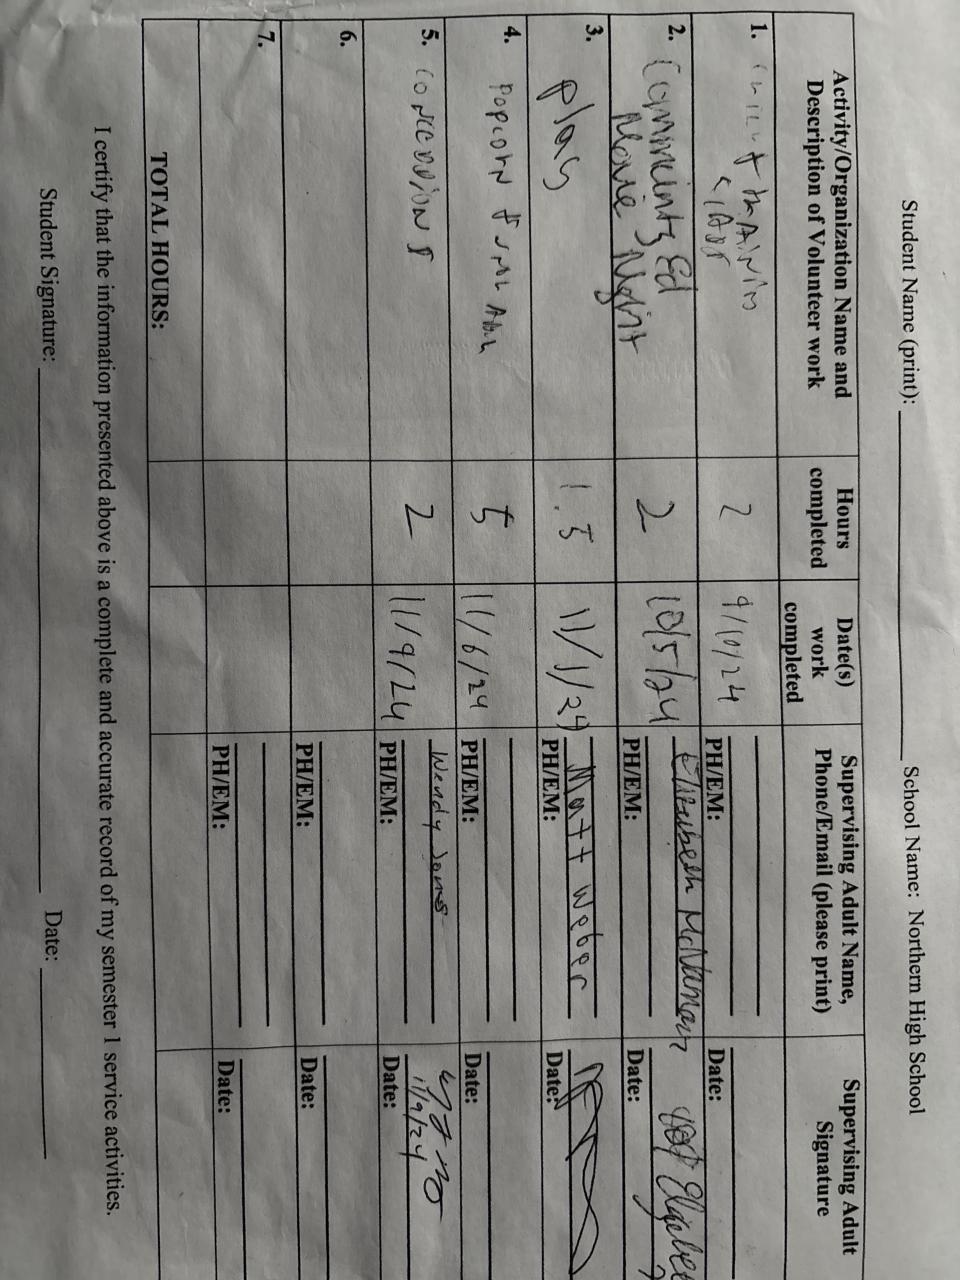 Student Name (print): School Name: Northern High School
Activity/Organization Name and Description of Volunteer work
Hours completed
Date(s) work completed
Supervising Adult Name, Phone/Email (please print)
Supervising Adult Signature
1.
2
9/10/24
PH/EM:
Date:
2. Community Ed
Movie Night
2
10/5/24
Elizabeth McNamara
PH/EM:
Date:
3. Play
1.5
11/1/24
Matt Weber
PH/EM:
Date:
4. Popcorn
5
11/6/24
PH/EM:
Date:
5. Concessions
2
11/9/24
Wendy Jones
PH/EM:
Date: 11/9/24
6.
PH/EM:
Date:
7.
PH/EM:
Date:
TOTAL HOURS:
I certify that the information presented above is a complete and accurate record of my semester 1 service activities.
Student Signature: Date: